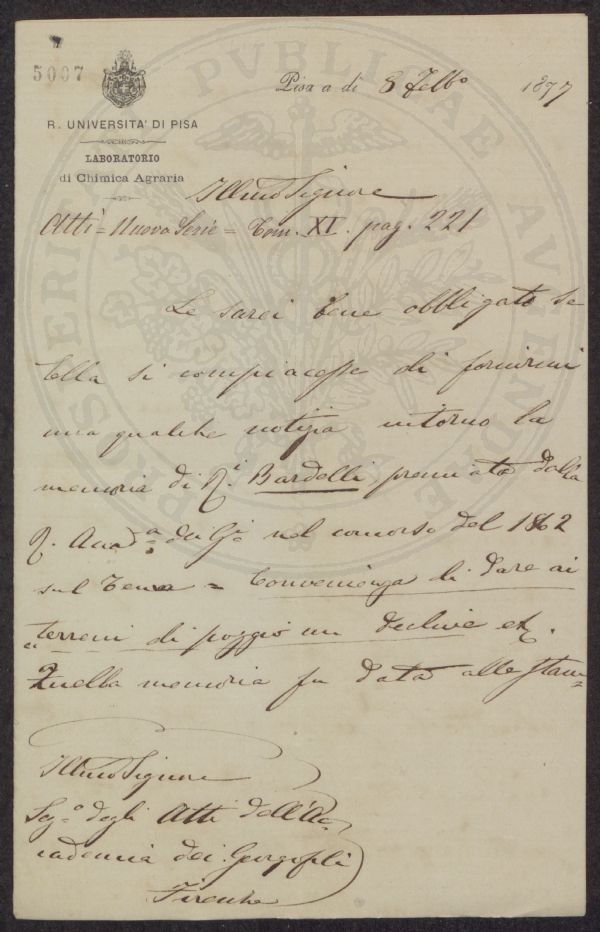 5007
R. UNIVERSITA' DI PISA
LABORATORIO
di Chimica Agraria
Pisa a dì 8 Febbº 1897
Illmo Signore
Atti = Nuova Serie = Tom. XI. pag. 221
Le sarei bene obbligato se
Ella si compiacesse di fornirmi
una qualche notizia intorno la
memoria di Bardelli, premiata dalla
R. Accadª dei Gi nel concorso del 1862
sul Tema = Convenienza di dare ai
"terreni di poggio un declive etc.
Quella memoria fu data alle stam=
Illmo Signore
Segº degli Atti dell'Ac=
cademia dei Georgofili
Firenze
PROSPERITATI PVBLICAE AVGENDAE